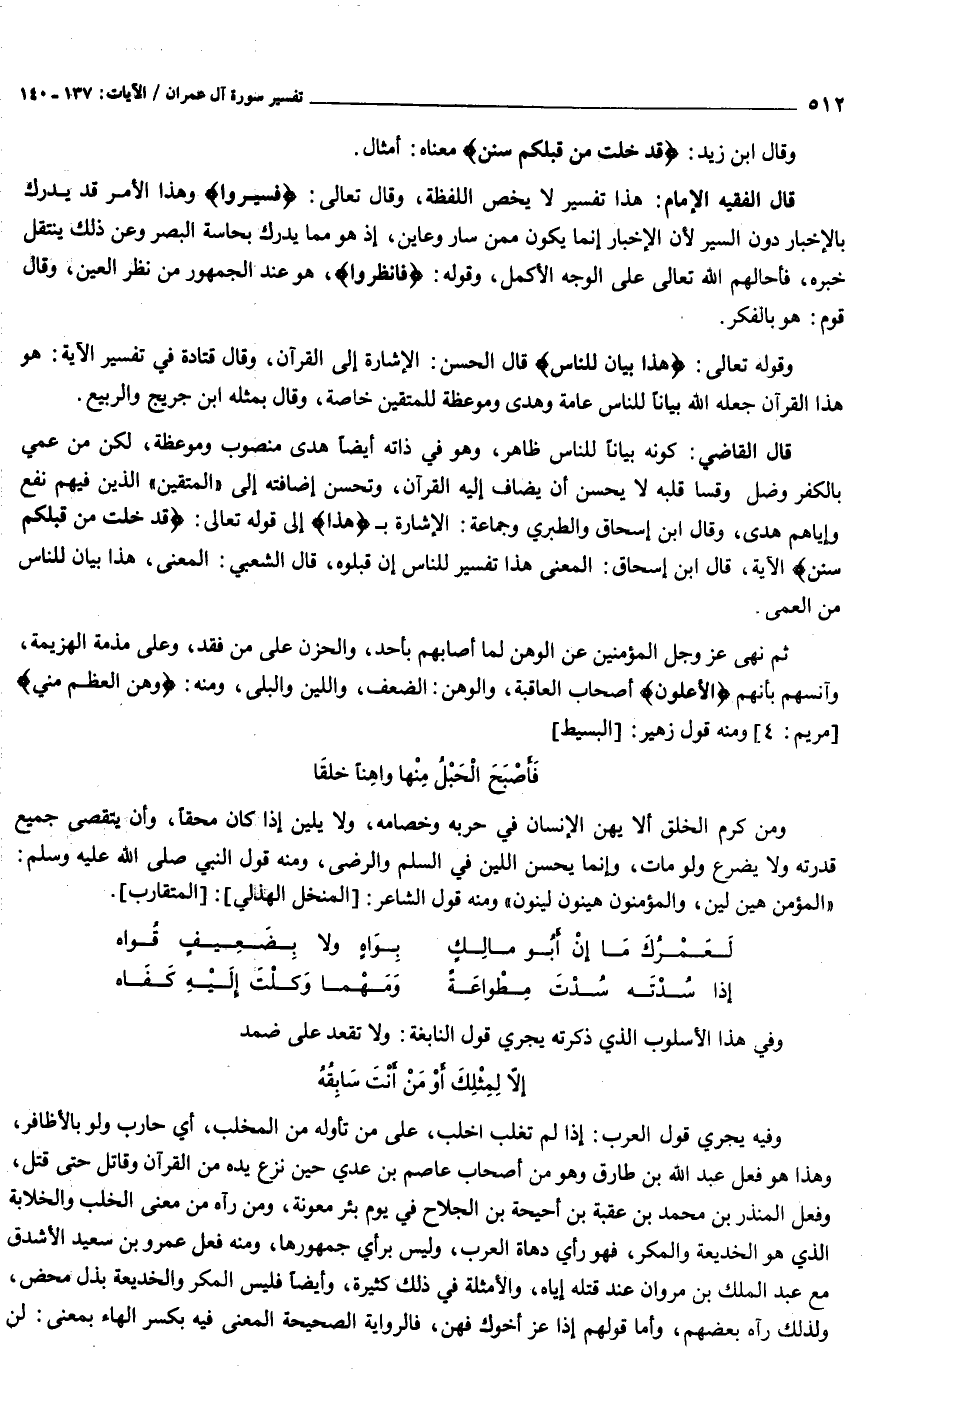 ٥١٢ ــــــــــ تفسير سورة آل عمران / الآيات: ١٣٧ ـ ١٤٠
وقال ابن زيد: ﴿قد خلت من قبلكم سنن﴾ معناه: أمثال.
قال الفقيه الإمام: هذا تفسير لا يخص اللفظة، وقال تعالى: ﴿فسيروا﴾ وهذا الأمر قد يدرك
بالإخبار دون السير لأن الإخبار إنما يكون ممن سار وعاين، إذ هو مما يدرك بحاسة البصر وعن ذلك ينتقل
خبره، فأحالهم الله تعالى على الوجه الأكمل، وقوله: ﴿فانظروا﴾، هو عند الجمهور من نظر العين، وقال
قوم: هو بالفكر.
وقوله تعالى: ﴿هذا بيان للناس﴾ قال الحسن: الإشارة إلى القرآن، وقال قتادة في تفسير الآية: هو
هذا القرآن جعله الله بياناً للناس عامة وهدى وموعظة للمتقين خاصة، وقال بمثله ابن جريج والربيع.
قال القاضي: كونه بياناً للناس ظاهر، وهو في ذاته أيضاً هدى منصوب وموعظة، لكن من عمي
بالكفر وضل وقسا قلبه لا يحسن أن يضاف إليه القرآن، وتحسن إضافته إلى «المتقين» الذين فيهم نفع
وإياهم هدى، وقال ابن إسحاق والطبري وجماعة: الإشارة بـ ﴿هذا﴾ إلى قوله تعالى: ﴿قد خلت من قبلكم
سنن﴾ الآية، قال ابن إسحاق: المعنى هذا تفسير للناس إن قبلوه، قال الشعبي: المعنى، هذا بيان للناس
من العمى.
ثم نهى عز وجل المؤمنين عن الوهن لما أصابهم بأحد، والحزن على من فقد، وعلى مذمة الهزيمة،
وآنسهم بأنهم ﴿الأعلون﴾ أصحاب العاقبة، والوهن: الضعف، واللين والبلى، ومنه: ﴿وهن العظم مني﴾
[مريم: ٤] ومنه قول زهير: [البسيط]
فَأَصْبَحَ الْحَبْلُ مِنْها واهِناً خلقَا
ومن كرم الخلق ألا يهن الإنسان في حربه وخصامه، ولا يلين إذا كان محقاً، وأن يتقصى جميع
قدرته ولا يضرع ولو مات، وإنما يحسن اللين في السلم والرضى، ومنه قول النبي صلى الله عليه وسلم:
«المؤمن هين لين، والمؤمنون هينون لينون» ومنه قول الشاعر: [المنخل الهذلي]: [المتقارب].
لَـعَـمْـرُكَ مَـا إِنْ أَبُـو مـالِـكٍ بِـوَاهٍ ولا بِـضَـعِـيـفٍ قُـواه
إذا سُـدْتَـه سُـدْتَ مِـطْواعَـةً وَمَـهْـمـا وَكـلْـتَ إِلَـيْـهِ كَـفَـاه
وفي هذا الأسلوب الذي ذكرته يجري قول النابغة: ولا تقعد على ضمد
إلّا لِمِثْلِكَ أَوْ مَنْ أَنْتَ سَابِقُهُ
وفيه يجري قول العرب: إذا لم تغلب اخلب، على من تأوله من المخلب، أي حارب ولو بالأظافر،
وهذا هو فعل عبد الله بن طارق وهو من أصحاب عاصم بن عدي حين نزع يده من القرآن وقاتل حتى قتل،
وفعل المنذر بن محمد بن عقبة بن أحيحة بن الجلاح في يوم بئر معونة، ومن رآه من معنى الخلب والخلابة
الذي هو الخديعة والمكر، فهو رأي دهاة العرب، وليس برأي جمهورها، ومنه فعل عمرو بن سعيد الأشدق
مع عبد الملك بن مروان عند قتله إياه، والأمثلة في ذلك كثيرة، وأيضاً فليس المكر والخديعة بذل محض،
ولذلك رآه بعضهم، وأما قولهم إذا عز أخوك فهن، فالرواية الصحيحة المعنى فيه بكسر الهاء بمعنى: لن